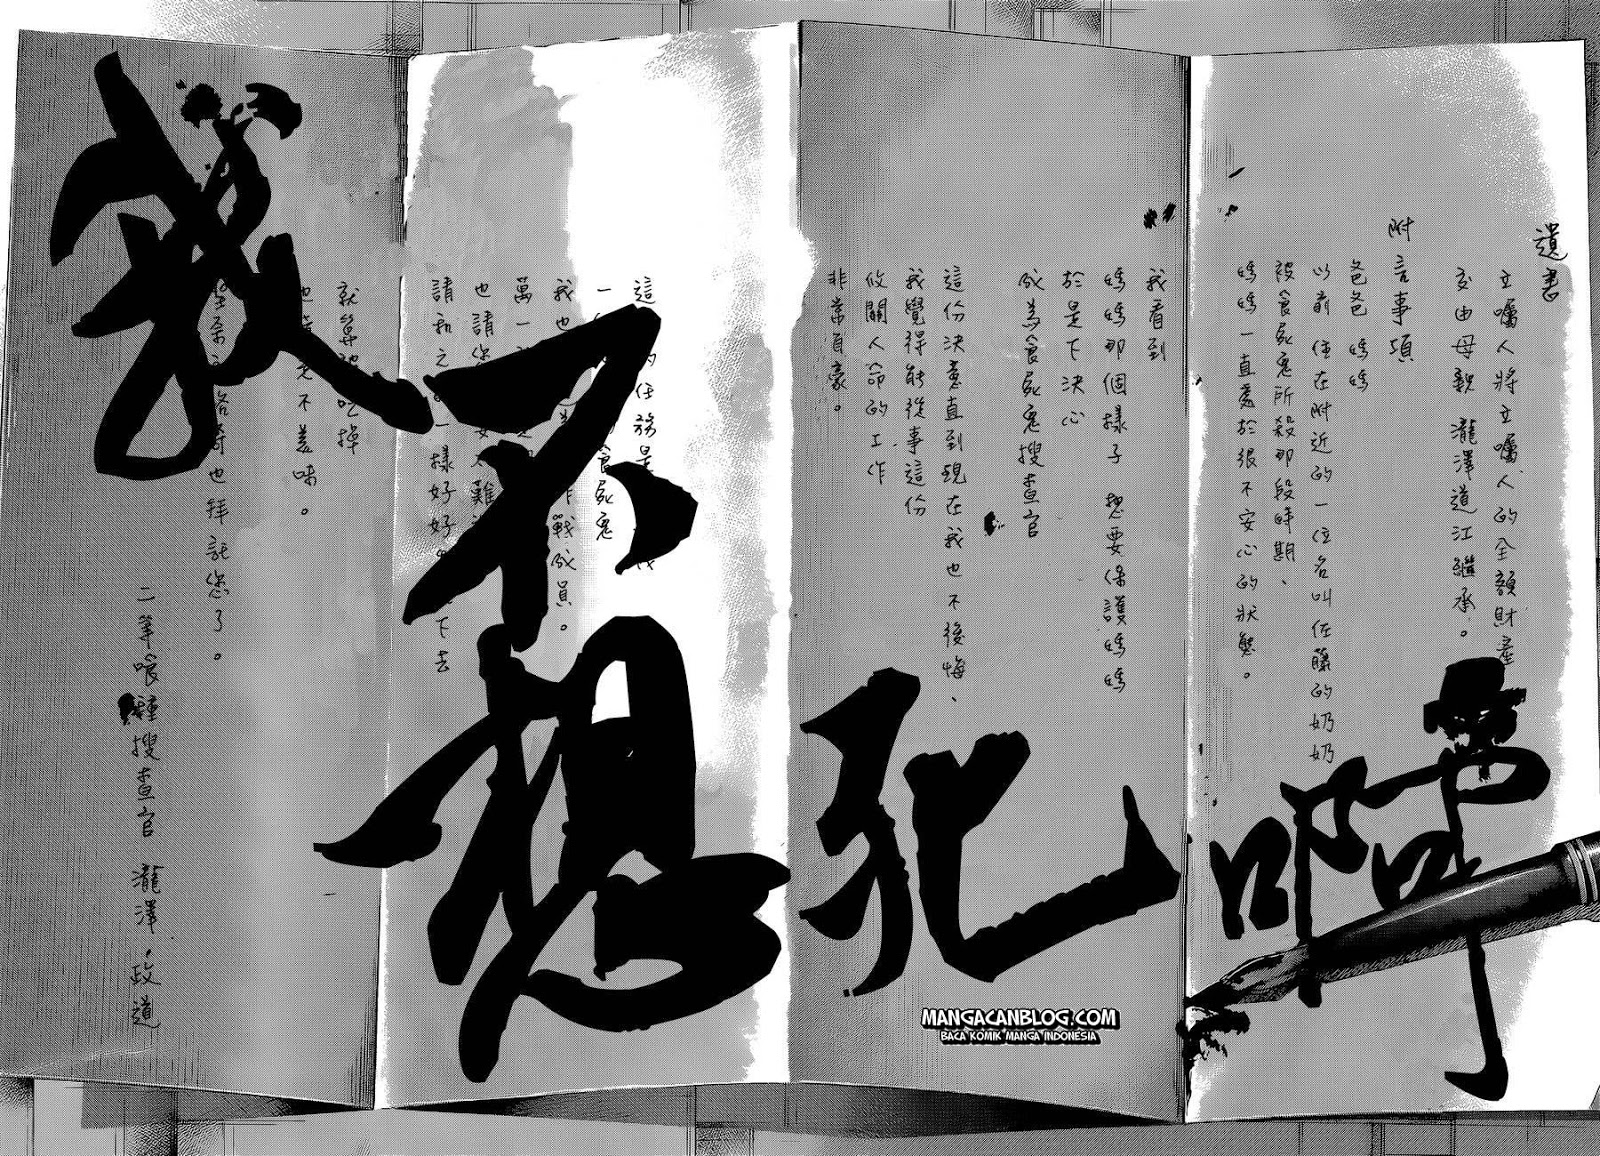 遺書
立囑人將立囑人的全額財產
交由母親 瀧澤道江繼承。
附言事項
爸爸 媽媽
以前住在附近的一位名叫佐藤的奶奶
被食屍鬼所殺那段時期、
媽媽一直處於很不安心的狀態。
我看到
媽媽那個樣子 想要保護媽媽
於是下決心
成為食屍鬼搜查官
這份決意直到現在我也不後悔、
我覺得能從事這份
攸關人命的工作
非常自豪。
這 的任務是
一 食屍鬼
我也 作戰成員。
萬一
也請您 難
請和之 一樣好好 下去
就算被吃掉
也 不美味。
也拜託您了。
二等喰種搜查官 瀧澤·政道
我不想
死啊
MANGACANBLOG.COM
BACA KOMIK MANGA INDONESIA